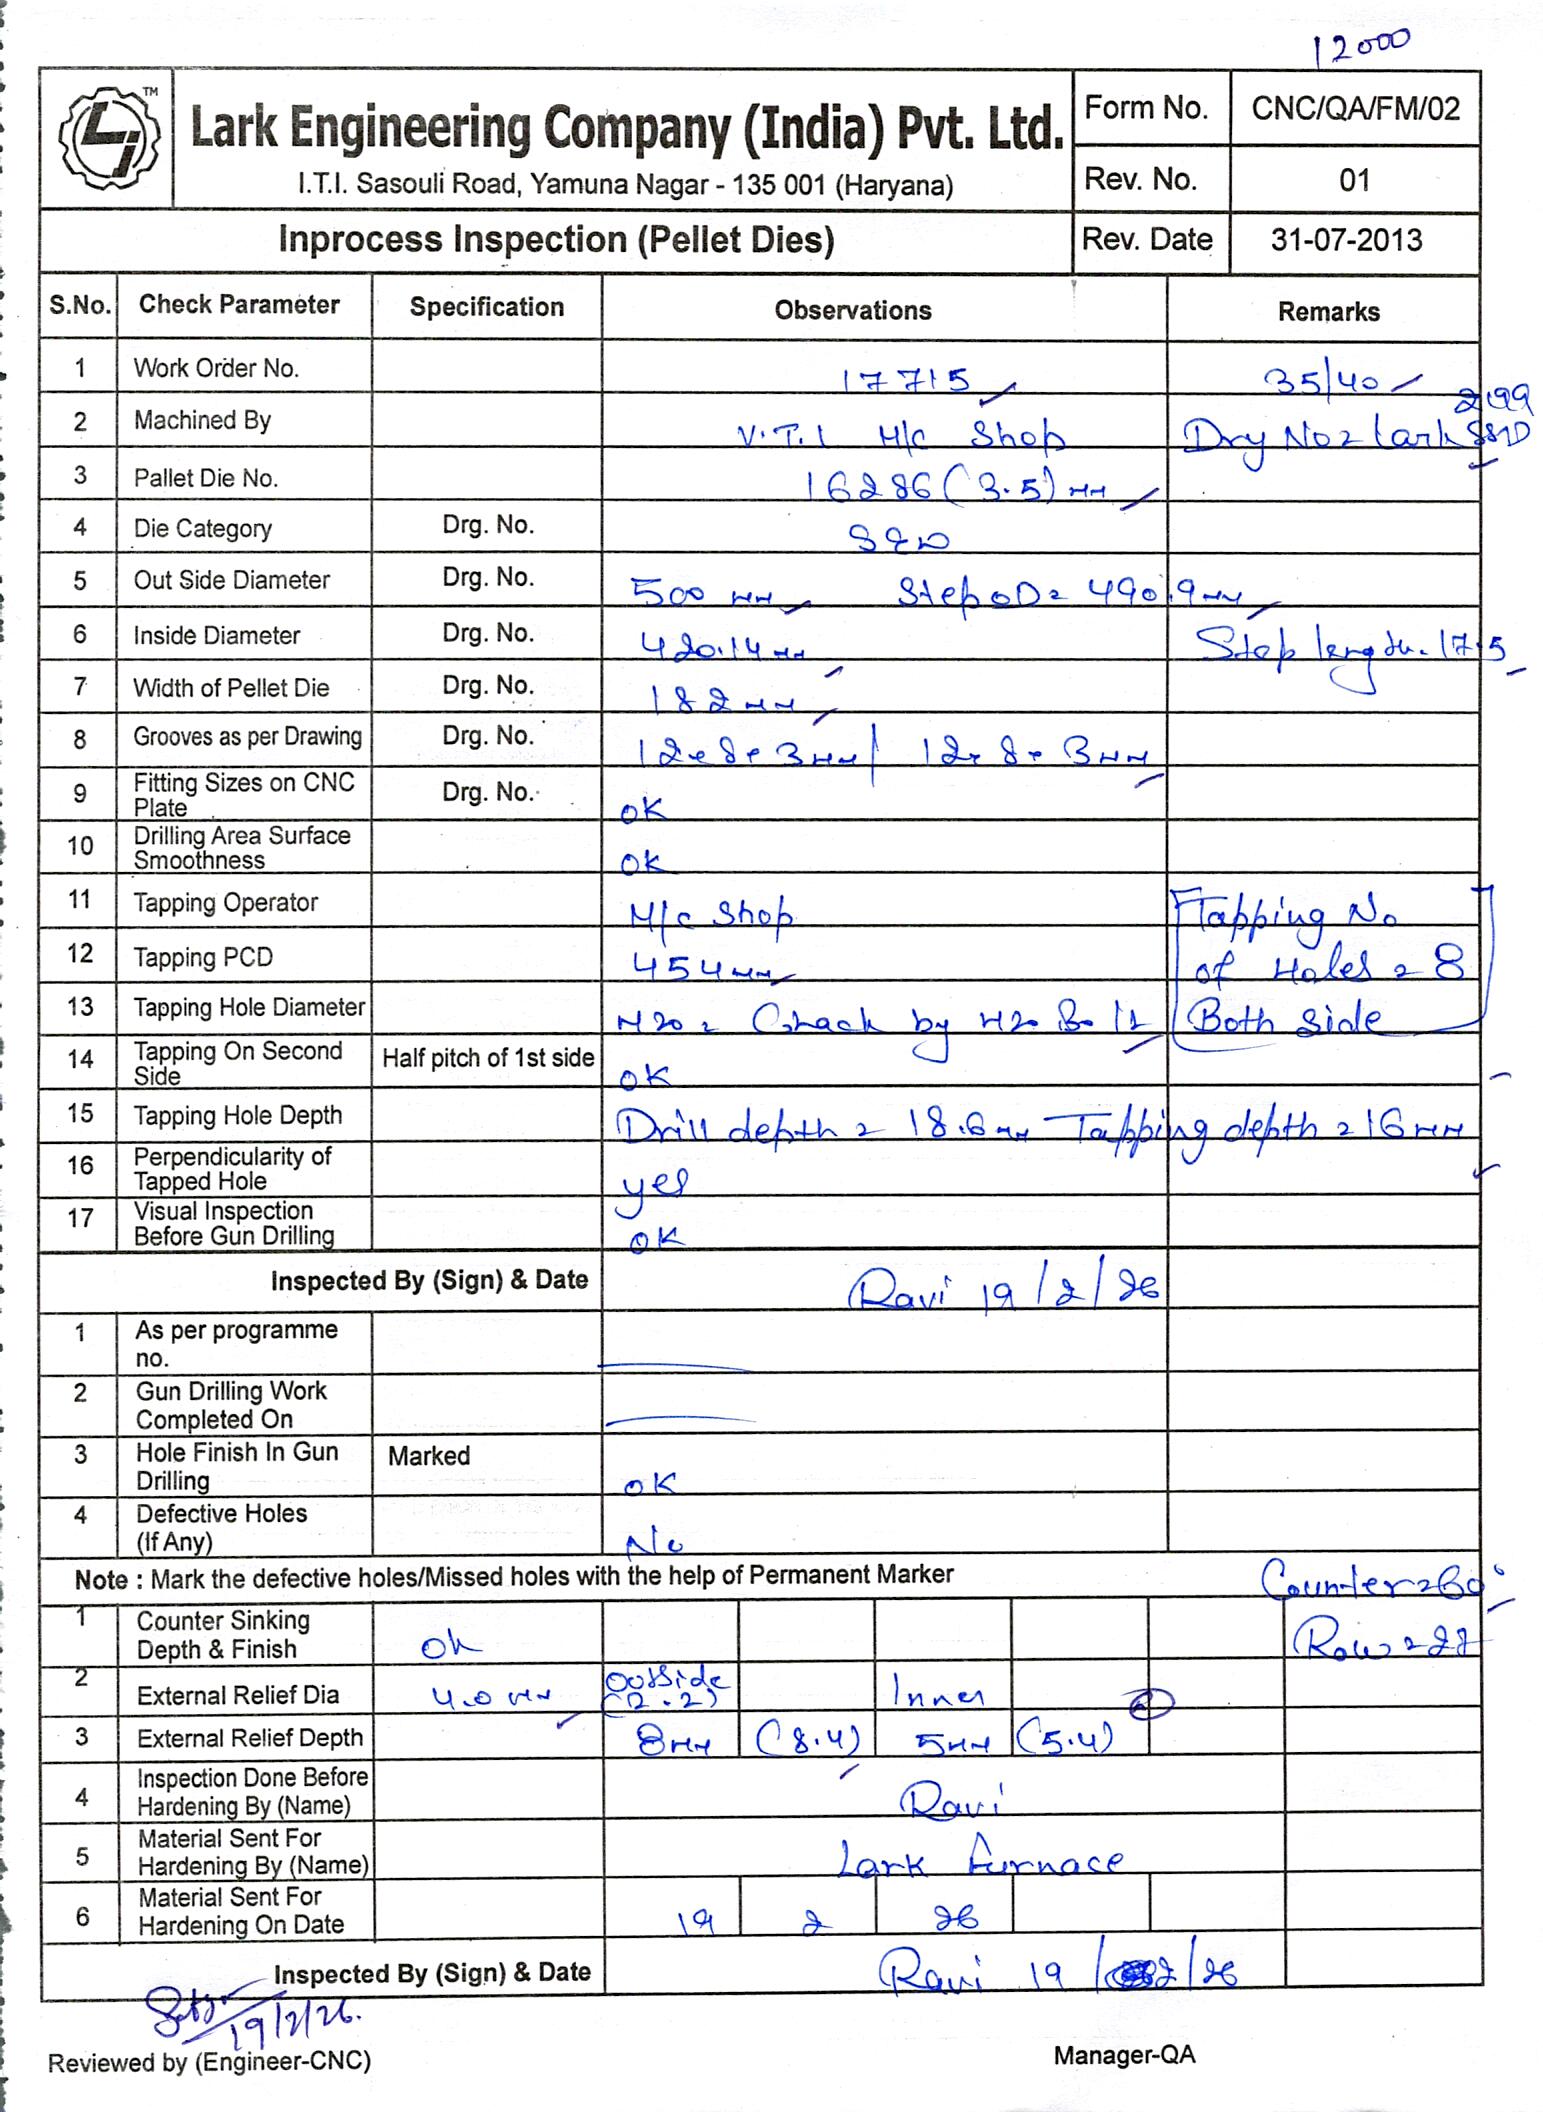 12000
TM
Lark Engineering Company (India) Pvt. Ltd.
I.T.I. Sasouli Road, Yamuna Nagar - 135 001 (Haryana)
Form No. CNC/QA/FM/02
Rev. No. 01
Inprocess Inspection (Pellet Dies)
Rev. Date 31-07-2013
S.No. Check Parameter Specification Observations Remarks
1 Work Order No. 17715 35/40
2 Machined By V.T.I M/c Shop Dry No = Lark
3 Pallet Die No. 16286 (3.5) mm
4 Die Category Drg. No.
5 Out Side Diameter Drg. No. 500 mm Step OD = 490.9 mm
6 Inside Diameter Drg. No. 420.14 mm Step length. 17.5
7 Width of Pellet Die Drg. No. 182 mm
8 Grooves as per Drawing Drg. No. 12 × 8 × 3 mm / 12 × 8 × 3 mm
9 Fitting Sizes on CNC Plate Drg. No. OK
10 Drilling Area Surface Smoothness OK
11 Tapping Operator M/c Shop Tapping No
12 Tapping PCD 454 mm of Holes = 8
13 Tapping Hole Diameter M20 = Chack by M20 Bolt Both Side
14 Tapping On Second Side Half pitch of 1st side OK
15 Tapping Hole Depth Drill depth = 18.6 mm Tapping depth = 16 mm
16 Perpendicularity of Tapped Hole yes
17 Visual Inspection Before Gun Drilling OK
Inspected By (Sign) & Date Ravi 19/2/26
1 As per programme no.
2 Gun Drilling Work Completed On
3 Hole Finish In Gun Drilling Marked OK
4 Defective Holes (If Any) No
Note : Mark the defective holes/Missed holes with the help of Permanent Marker Counter = 60°
1 Counter Sinking Depth & Finish Ok Row = 27
2 External Relief Dia 4.0 mm Outside (2.2) Inner
3 External Relief Depth 8 mm (8.4) 5 mm (5.4)
4 Inspection Done Before Hardening By (Name) Ravi
5 Material Sent For Hardening By (Name) Lark Furnace
6 Material Sent For Hardening On Date 19 2 26
Inspected By (Sign) & Date Ravi 19/2/26
19/2/26.
Reviewed by (Engineer-CNC) Manager-QA